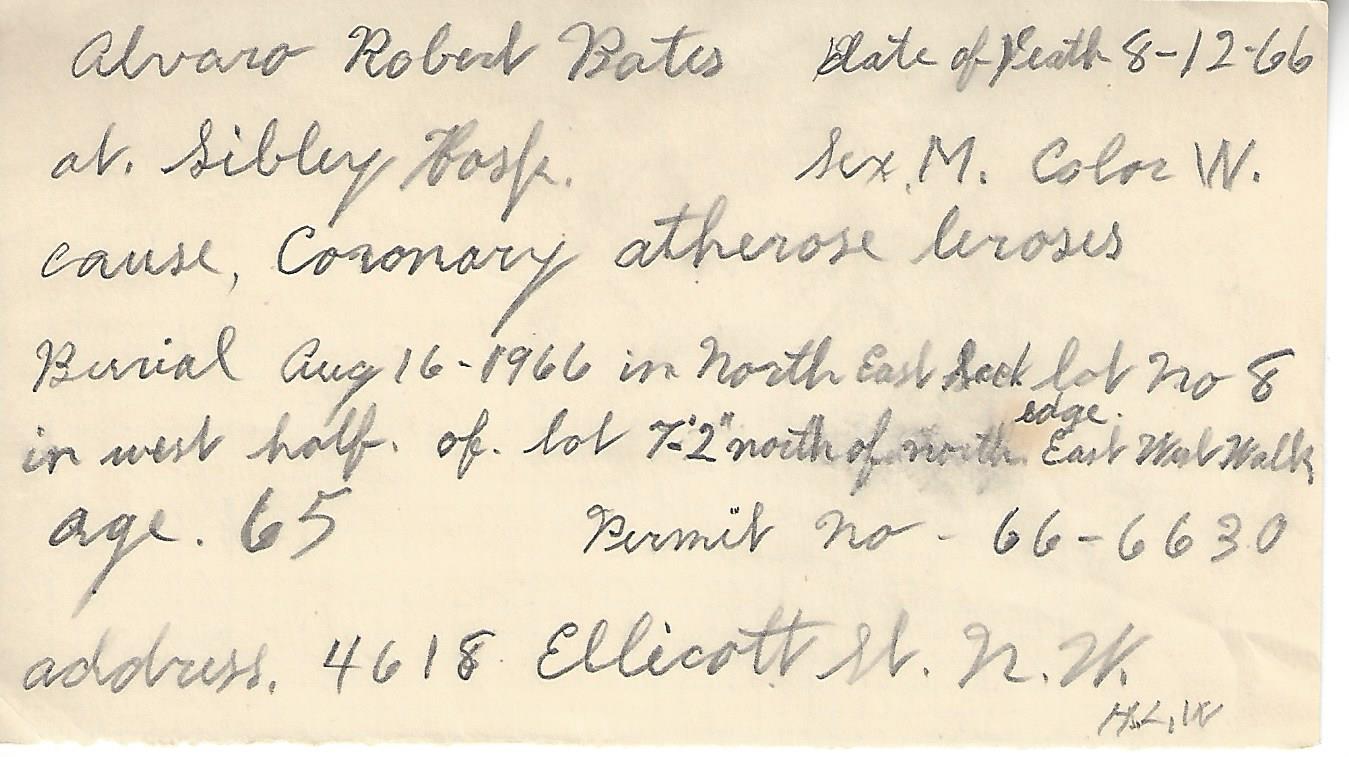 Alvaro Robert Bates Date of Death 8-12-66
at. Sibley Hosp. Sex, M. Color W.
cause, Coronary atherose leroses
Burial Aug 16-1966 in North East Sect lot No 8
edge.
in west half. of. lot 7'-2" north of north East West Walk,
age. 65 Permit No - 66-6630
address. 4618 Ellicott St. N.W.
H.L.W